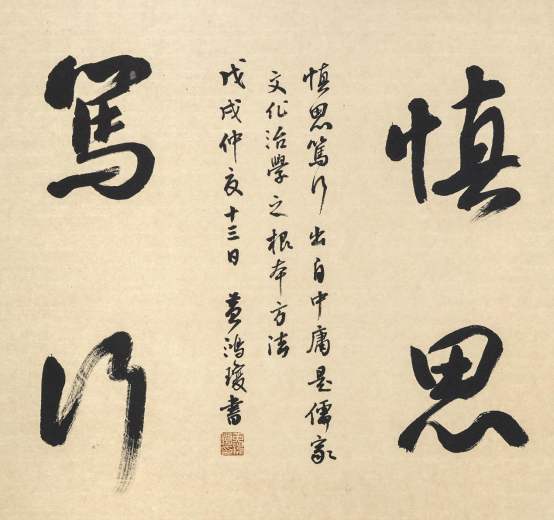 慎思
慎思篤行出自中庸是儒家
文化治學之根本方法
戊戌仲夏十三日 黄鴻瓊書
篤行